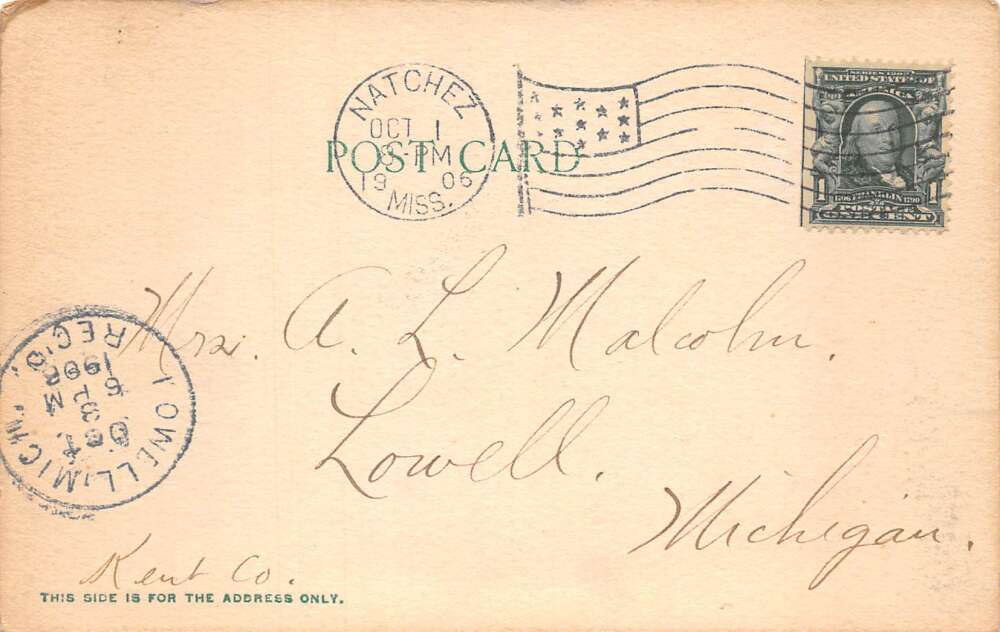 NATCHEZ
OCT 1
8-PM
19 06
MISS.
POST CARD
SERIES 1902
UNITED STATES OF
AMERICA
1 FRANKLIN 1790 1
ONE CENT
Mrs. A. L. Malcolm.
Lowell.
Michigan.
LOWELL, MICH.
OCT.
3
M
1906
REC'D.
Kent Co.
THIS SIDE IS FOR THE ADDRESS ONLY.